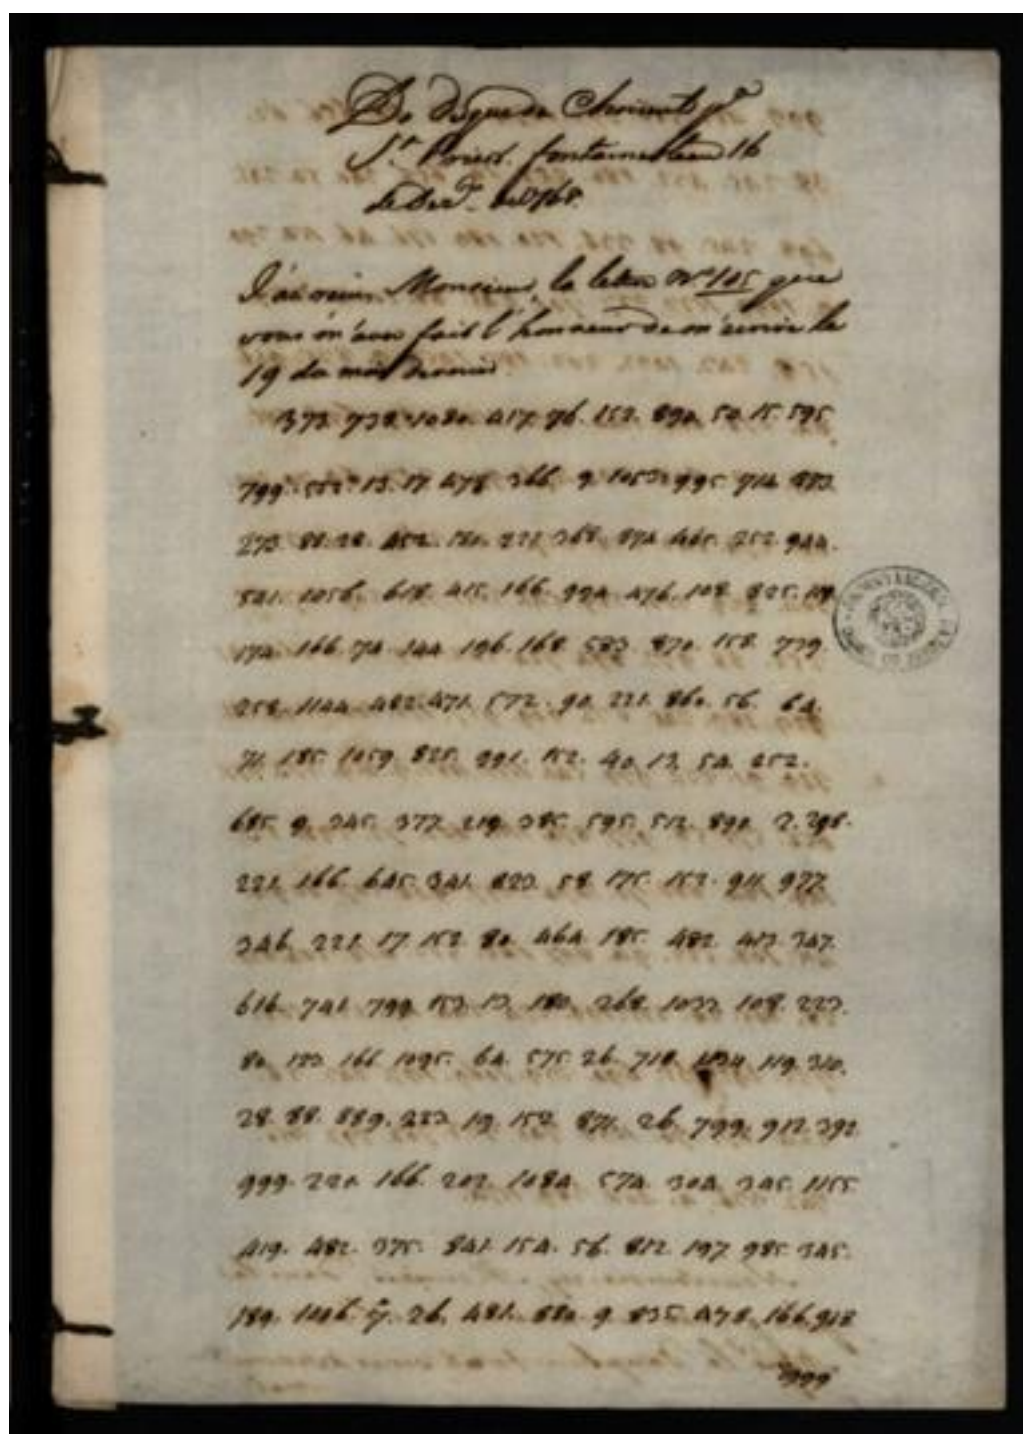 Do Duque de Choiseul pª
Sr. Fontainebleau 16
de 1768.
J'ai reçu, Monsieur, la lettre Nº 105 que
vous m'avez fait l'honneur de m'ecrire le
19 du mois dernier.
373. 738. 1080. 417. 76. 152. 890. 50. 15. 595
799. 13. 17. 478. 366. 9. 1053. 995. 714. 873
273. 88. 28. 452. 180. 221. 368. 874. 465. 252. 944.
541. 1056. 618. 415. 166. 994. 476. 108. 825. 119
174. 166. 74. 144. 196. 168. 583. 870. 158. 779
258. 1144. 482. 471. 572. 90. 221. 860. 56. 64.
71. 185. 1059. 825. 991. 152. 40. 13. 54. 252.
685. 9. 345. 377. 219. 385. 595. 512. 890. 2. 298.
221. 166. 645. 341. 823. 58. 175. 152. 911. 977
346. 221. 17. 152. 80. 464. 185. 482. 417. 347.
616. 741. 799. 153. 13. 180. 268. 1033. 108. 223.
80. 123. 166. 1095. 64. 575. 26. 718. 1134. 119. 310.
28. 88. 889. 223. 19. 152. 871. 26. 799. 912. 392
999. 220. 166. 202. 1084. 574. 304. 345. 1155
419. 482. 375. 841. 154. 56. 812. 197. 985. 345.
189. 1106. 7. 26. 481. 880. 9. 835. 478. 166. 918
999